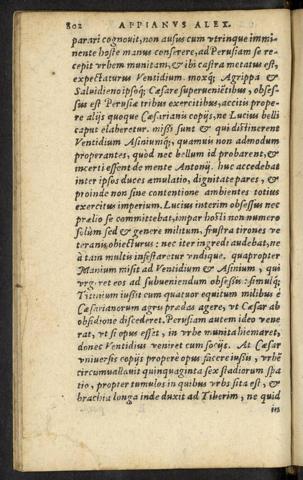 802 APPIANVS ALEX.
parari cognouit, non ausus cum vtrinque immi-
nente hoste manus conserere, ad Perusiam se re-
cepit vrbem munitam, & ibi castra metatus est,
expectaturus Ventidium. moxq; Agrippa &
Saluidieno ipsoq; Cæsare superueniētibus, obses-
sus est Perusiæ tribus exercitibus, accitis prope-
re alijs quoque Cæsarianis copijs, ne Lucius belli
caput elaberetur. missi sunt & qui distinerent
Ventidium Asiniumq;, quamuis non admodum
properantes, quòd nec bellum id probarent, &
incerti essent de mente Antonij. huc accedebat
inter ipsos duces æmulatio, dignitate pares, &
proinde non sine contentione ambientes totius
exercitus imperium. Lucius interim obsessus nec
prælio se committebat, impar hosti non numero
solùm sed & genere militum, frustra tirones ve
teranis obiecturus: nec iter ingredi audebat, ne
à tam multis infestaretur vndique. quapropter
Manium misit ad Ventidium & Asinium, qui
vrgeret eos ad subueniendum obsessis: simulq;
Titinium iussit cum quatuor equitum milibus è
Cæsarianorum agris prædas agere, vt Cæsar ab
obsidione discederet. Perusiam autem ideo vene
rat, vt si opus esset, in vrbe munita hiemaret,
donec Ventidius veniret cum socijs. At Cæsar
vniuersis copijs properè opus facere iussis, vrbē
circumuallauit quinquaginta sex stadiorum spa
tio, propter tumulos in quibus vrbs sita est, &
brachia longa inde duxit ad Tiberim, ne quid